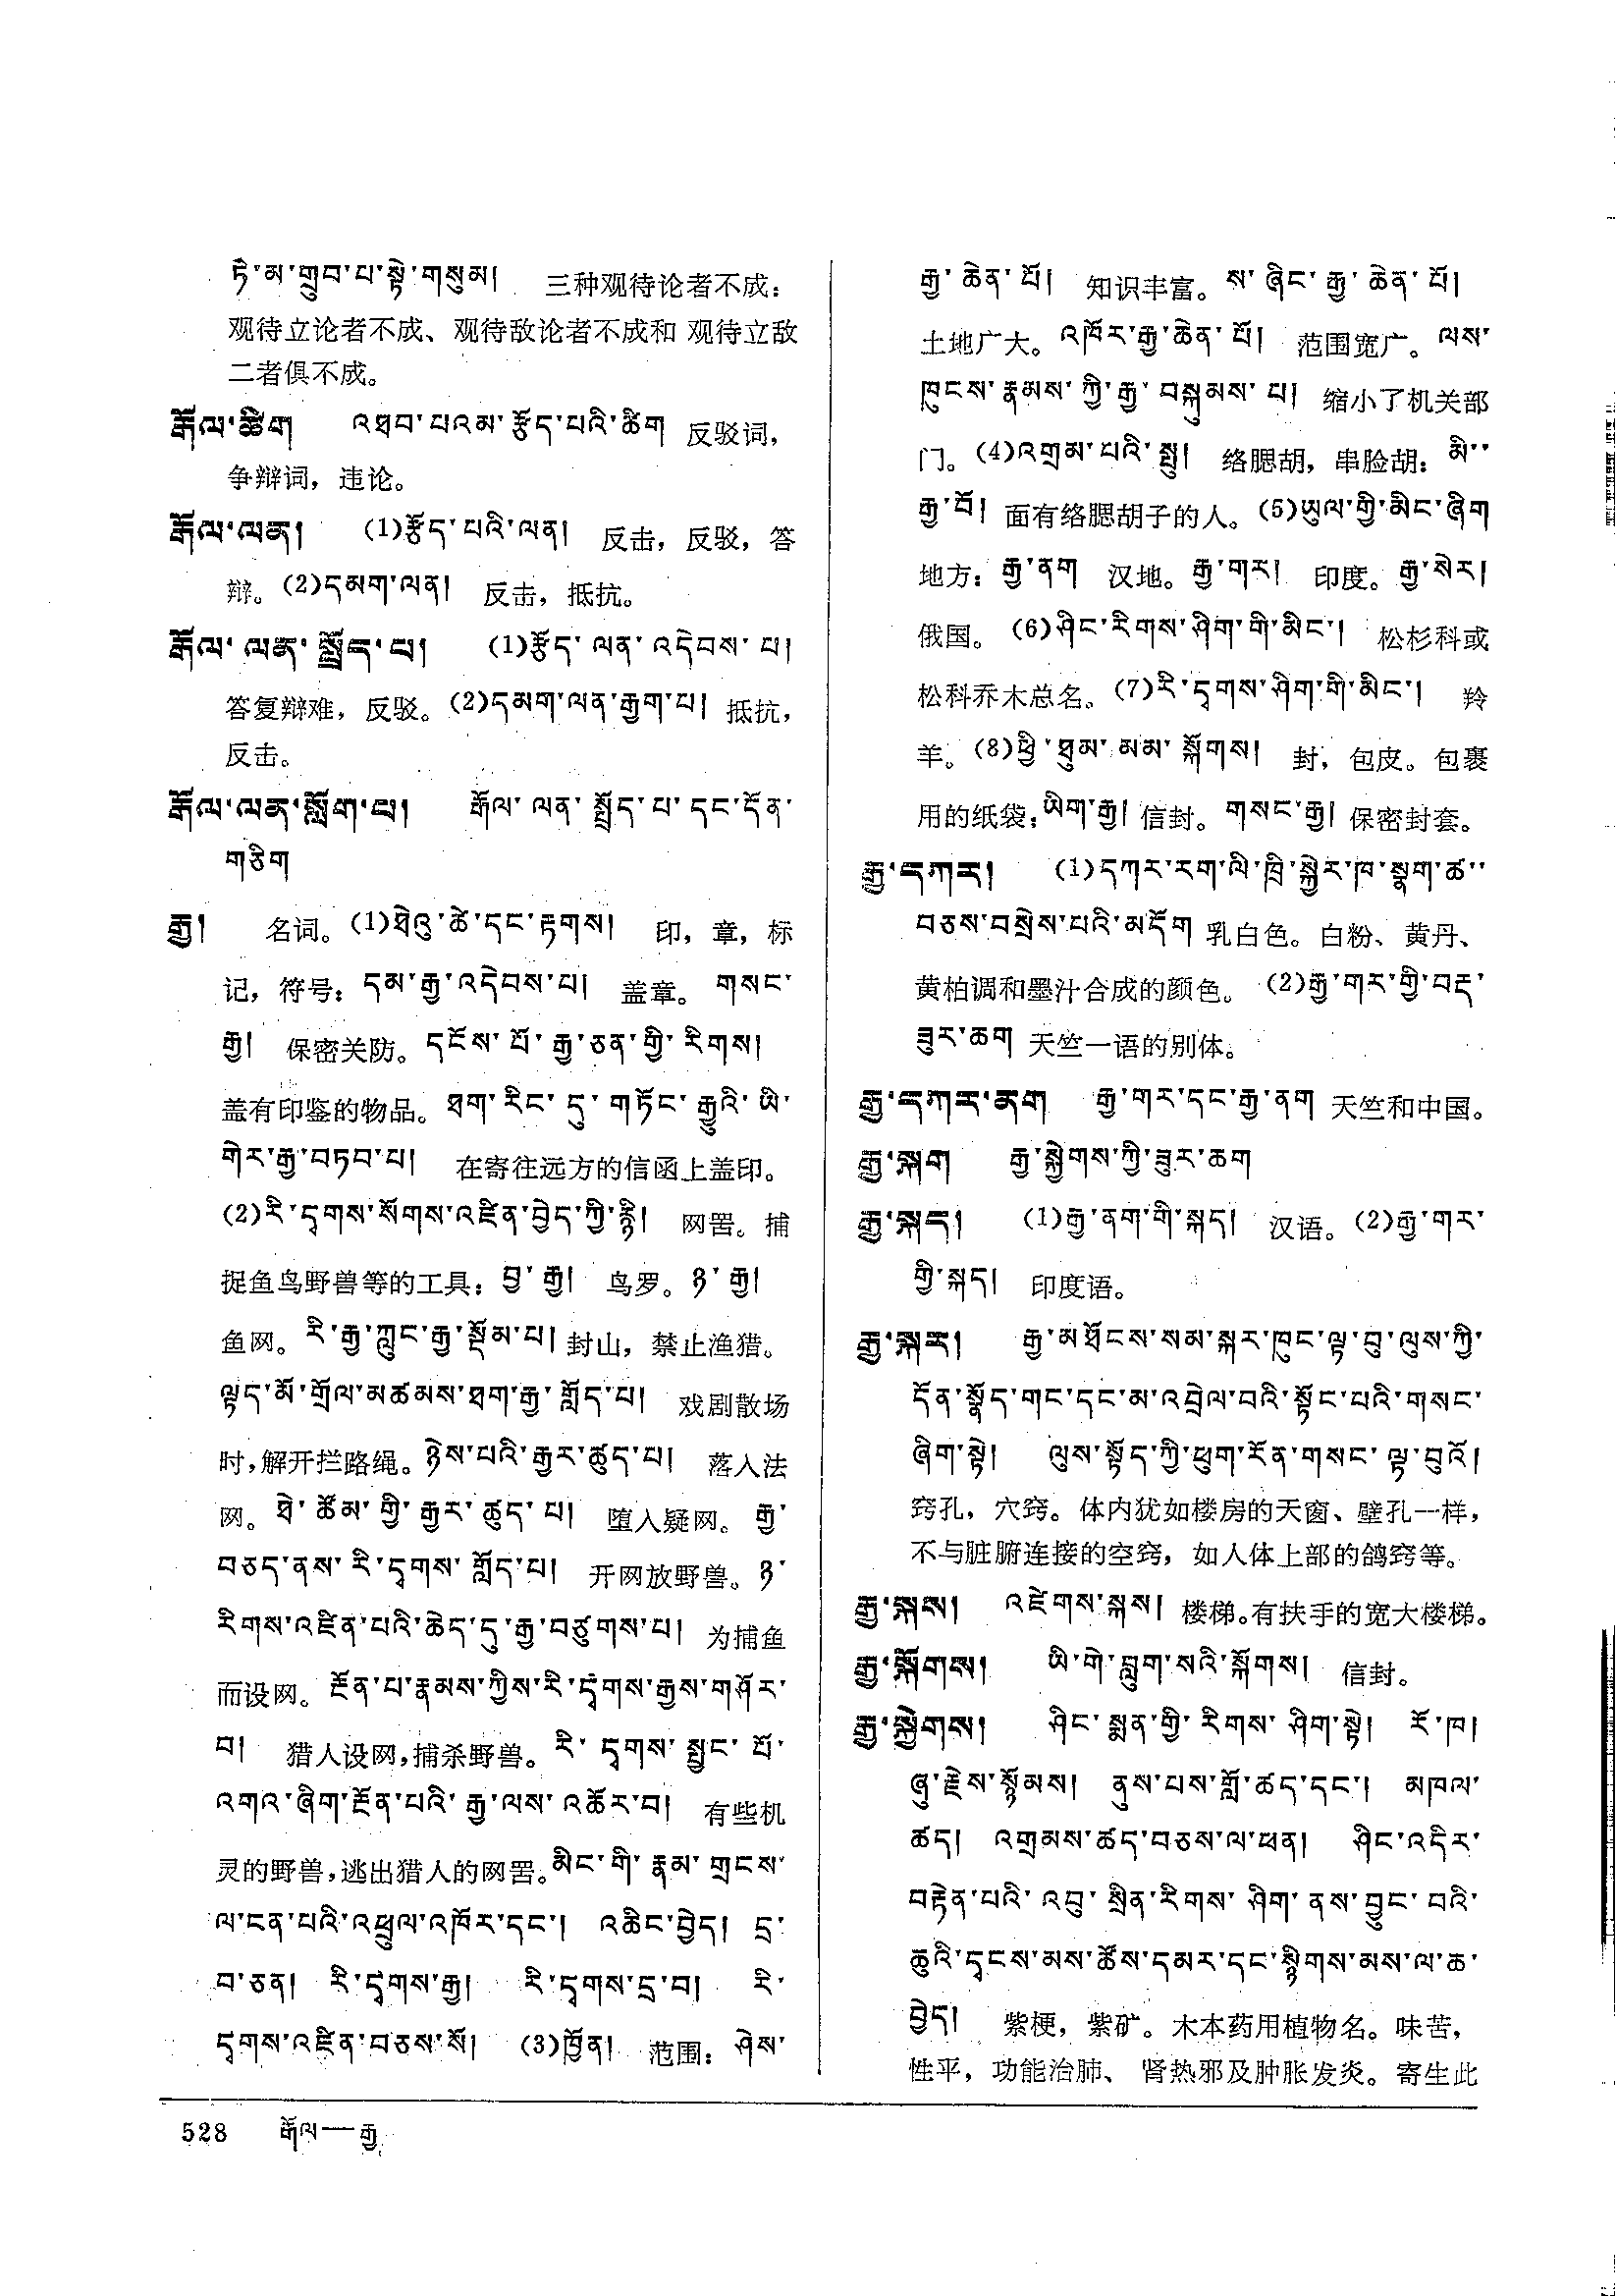 ཏེ་མ་གྲུབ་པ་སྟེ་གསུམ། 三种观待论者不成：
观待立论者不成、观待敌论者不成和 观待立敌
二者俱不成。
རྒོལ་ཚིག འཐབ་པའམ་རྩོད་པའི་ཚིག 反驳词，
争辩词，违论。
རྒོལ་ལན། (1)རྩོད་པའི་ལན། 反击，反驳，答
辩。(2)དམག་ལན། 反击，抵抗。
རྒོལ་ལན་སྤྲོད་པ། (1)རྩོད་ལན་འདེབས་པ།
答复辩难，反驳。(2)དམག་ལན་རྒྱག་པ། 抵抗，
反击。
རྒོལ་ལན་སློག་པ། རྒོལ་ལན་སྤྲོད་པ་དང་དོན་
གཅིག
རྒྱ། 名词。(1)ཐེའུ་ཚེ་དང་རྟགས། 印，章，标
记，符号：དམ་རྒྱ་འདེབས་པ། 盖章。 གསང་
རྒྱ། 保密关防。དངོས་པོ་རྒྱ་ཅན་གྱི་རིགས།
盖有印鉴的物品。ཐག་རིང་དུ་གཏོང་རྒྱུའི་ཡི་
གེར་རྒྱ་བཏབ་པ། 在寄往远方的信函上盖印。
(2)རི་དྭགས་སོགས་འཛིན་བྱེད་ཀྱི་རྙི། 网罟。捕
捉鱼鸟野兽等的工具：བྱ་རྒྱ། 鸟罗。ཉ་རྒྱ།
鱼网。རི་རྒྱ་ཀླུང་རྒྱ་སྡོམ་པ། 封山，禁止渔猎。
ལྟད་མོ་གྲོལ་མཚམས་ཐག་རྒྱ་གློད་པ། 戏剧散场
时，解开拦路绳。ཉེས་པའི་རྒྱར་ཚུད་པ། 落入法
网。ཐེ་ཚོམ་གྱི་རྒྱར་ཚུད་པ། 堕入疑网。རྒྱ་
བཅད་ནས་རི་དྭགས་གློད་པ། 开网放野兽。ཉ་
རིགས་འཛིན་པའི་ཆེད་དུ་རྒྱ་བཙུགས་པ། 为捕鱼
而设网。རྔོན་པ་རྣམས་ཀྱིས་རི་དྭགས་རྒྱས་གཤོར་
བ། 猎人设网，捕杀野兽。རི་དྭགས་སྤྱང་པོ་
འགའ་ཞིག་རྔོན་པའི་རྒྱ་ལས་འཚོར་བ། 有些机
灵的野兽，逃出猎人的网罟。མིང་གི་རྣམ་གྲངས་
ལ་ངན་པའི་འཕྲུལ་འཁོར་དང་། འཆིང་བྱེད། དྲ་
བ་ཅན། རི་དྭགས་རྒྱ། རི་དྭགས་དྲ་བ། རི་
དྭགས་འཛིན་བཅས་སོ། (3)ཁྱོན། 范围：ཤེས་
རྒྱ་ཆེན་པོ། 知识丰富。ས་ཞིང་རྒྱ་ཆེན་པོ།
土地广大。འཁོར་རྒྱ་ཆེན་པོ། 范围宽广。ལས་
ཁུངས་རྣམས་ཀྱི་རྒྱ་བསྐུམས་པ། 缩小了机关部
门。(4)འགྲམ་པའི་སྤུ། 络腮胡，串脸胡：མི་་
རྒྱ་བོ། 面有络腮胡子的人。(5)ཡུལ་གྱི་མིང་ཞིག
地方：རྒྱ་ནག 汉地。རྒྱ་གར། 印度。རྒྱ་སེར།
俄国。(6)ཤིང་རིགས་ཤིག་གི་མིང་། 松杉科或
松科乔木总名。(7)རི་དྭགས་ཤིག་གི་མིང་། 羚
羊。(8)ཕྱི་ཐུམ་མམ་སྐོགས། 封，包皮。包裹
用的纸袋：ཡིག་རྒྱ། 信封。གསང་རྒྱ། 保密封套。
རྒྱ་དཀར། (1)དཀར་རག་ལི་ཁྲི་སྐྱེར་ཁ་སྣག་ཚ་་
བཅས་བསྲེས་པའི་མདོག 乳白色。白粉、黄丹、
黄柏调和墨汁合成的颜色。(2)རྒྱ་གར་གྱི་བརྡ་
ཟུར་ཆག 天竺一语的别体。
རྒྱ་དཀར་ནག རྒྱ་གར་དང་རྒྱ་ནག 天竺和中国。
རྒྱ་སྐག རྒྱ་སྐྱེགས་ཀྱི་ཟུར་ཆག
རྒྱ་སྐད། (1)རྒྱ་ནག་གི་སྐད། 汉语。(2)རྒྱ་གར་
གྱི་སྐད། 印度语。
རྒྱ་སྐར། རྒྱ་མཐོངས་སམ་སྐར་ཁུང་ལྟ་བུ་ལུས་ཀྱི་
དོན་སྣོད་གང་དང་མ་འབྲེལ་བའི་སྟོང་པའི་གསང་
ཞིག་སྟེ། ལུས་སྟོད་ཀྱི་ཕུག་རོན་གསང་ལྟ་བུའོ།
窍孔，穴窍。体内犹如楼房的天窗、壁孔一样，
不与脏腑连接的空窍，如人体上部的鸽窍等。
རྒྱ་སྐས། འཛེགས་སྐས། 楼梯。有扶手的宽大楼梯。
རྒྱ་སྐོགས། ཡི་གེ་བླུག་སའི་སྐོགས། 信封。
རྒྱ་སྐྱེགས། ཤིང་སྨན་གྱི་རིགས་ཤིག་སྟེ། རོ་ཁ།
ཞུ་རྗེས་སྙོམས། ནུས་པས་གློ་ཚད་དང་། མཁལ་
ཚད། འགྲམས་ཚད་བཅས་ལ་ཕན། ཤིང་འདིར་
བརྟེན་པའི་འབུ་སྲིན་རིགས་ཤིག་ནས་བྱུང་བའི་
ཆུའི་དྭངས་མས་ཚོས་དམར་དང་སྙིགས་མས་ལ་ཆ་
བྱེད། 紫梗，紫矿。木本药用植物名。味苦，
性平，功能治肺、 肾热邪及肿胀发炎。寄生此
528 རྒོལ—རྒྱ